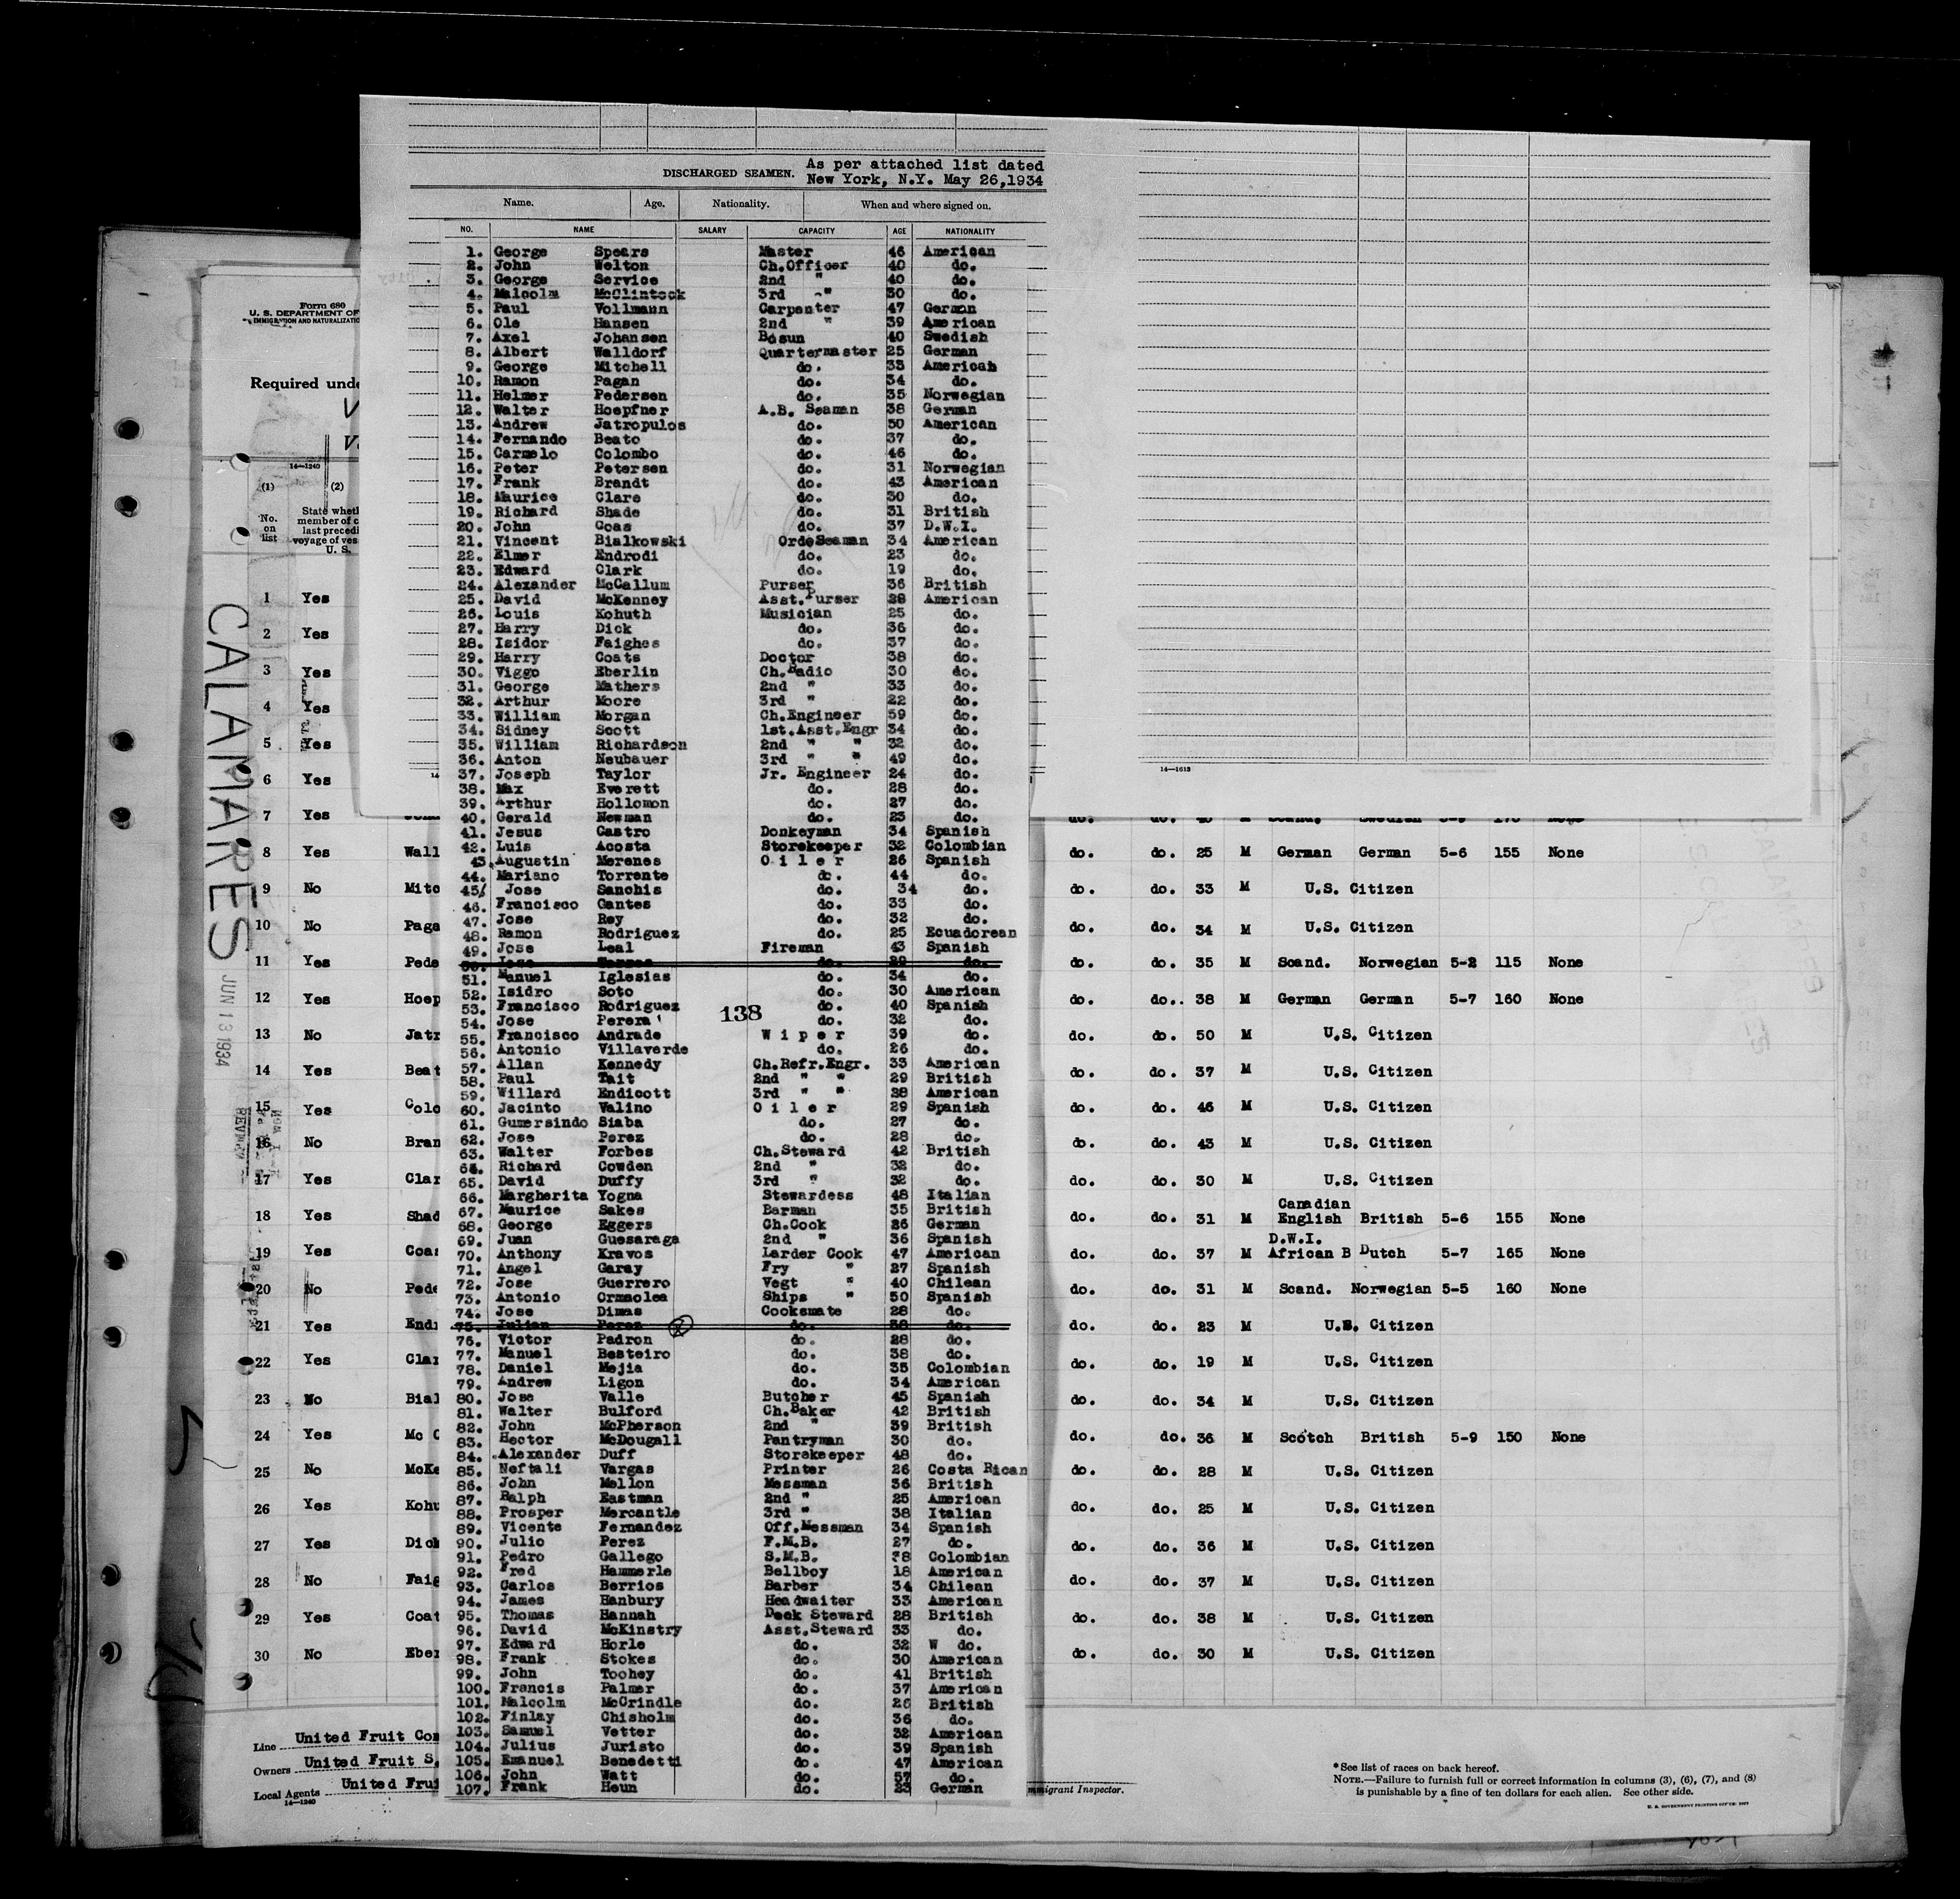 DISCHARGED SEAMEN. As per attached list dated
New York, N.Y. May 26,1934
Name. Age. Nationality. When and where signed on.
NO. NAME SALARY CAPACITY AGE NATIONALITY
1. George Spears Master 46 American
2. John Welton Ch.Officer 40 do.
3. George Service 2nd " 40 do.
4. Malcolm McClintock 3rd " 30 do.
5. Paul Vollmann Carpenter 47 German
6. Ole Hansen 2nd " 39 American
7. Axel Johansen Bosun 40 Swedish
8. Albert Walldorf Quartermaster 25 German
9. George Mitchell do. 33 American
10. Ramon Pagan do. 34 do.
11. Helmer Pedersen do. 35 Norwegian
12. Walter Hoepfner A.B. Seaman 38 German
13. Andrew Jatropulos do. 50 American
14. Fernando Beato do. 37 do.
15. Carmelo Colombo do. 46 do.
16. Peter Petersen do. 31 Norwegian
17. Frank Brandt do. 43 American
18. Maurice Clare do. 30 do.
19. Richard Shade do. 31 British
20. John Coas do. 37 D.W.I.
21. Vincent Bialkowski OrdeSeaman 34 American
22. Elmer Endrodi do. 23 do.
23. Edward Clark do. 19 do.
24. Alexander McCallum Purser 36 British
25. David McKenney Asst.Purser 28 American
26. Louis Kohuth Musician 25 do.
27. Harry Dick do. 36 do.
28. Isidor Faighes do. 37 do.
29. Harry Coats Doctor 38 do.
30. Viggo Eberlin Ch.Radio 30 do.
31. George Mathers 2nd " 33 do.
32. Arthur Moore 3rd " 22 do.
33. William Morgan Ch.Engineer 59 do.
34. Sidney Scott 1st.Asst.Engr 34 do.
35. William Richardson 2nd " " 32 do.
36. Anton Neubauer 3rd " " 49 do.
37. Joseph Taylor Jr. Engineer 24 do.
38. Max Everett do. 28 do.
39. Arthur Hollomon do. 27 do.
40. Gerald Newman do. 23 do.
41. Jesus Castro Donkeyman 34 Spanish
42. Luis Acosta Storekeeper 32 Colombian
43. Augustin Merenes Oiler 26 Spanish
44. Mariano Torrente do. 44 do.
45/ Jose Sanchis do. 34 do.
46. Francisco Gantes do. 33 do.
47. Jose Rey do. 32 do.
48. Ramon Rodriguez do. 25 Ecuadorean
49. Jose Leal Fireman 43 Spanish
50. Jose do. do.
51. Manuel Iglesias do. 34 do.
52. Isidro Soto do. 30 American
53. Francisco Rodriguez do. 40 Spanish
138
54. Jose Perera do. 32 do.
55. Francisco Andrade Wiper 39 do.
56. Antonio Villaverde do. 26 do.
57. Allan Kennedy Ch.Refr.Engr. 33 American
58. Paul Tait 2nd " " 29 British
59. Willard Endicott 3rd " " 28 American
60. Jacinto Valino Oiler 29 Spanish
61. Gumersindo Siaba do. 27 do.
62. Jose Perez do. 28 do.
63. Walter Forbes Ch.Steward 42 British
64. Richard Cowden 2nd " 32 do.
65. David Duffy 3rd " 32 do.
66. Margherita Yogna Stewardess 48 Italian
67. Maurice Sakes Barman 35 British
68. George Eggers Ch.Cook 26 German
69. Juan Guesaraga 2nd " 36 Spanish
70. Anthony Kravos Larder Cook 47 American
71. Angel Garay Fry " 27 Spanish
72. Jose Guerrero Vegt " 40 Chilean
73. Antonio Ormaolea Ships " 50 Spanish
74. Jose Dimas Cooksmate 28 do.
75. Julian Perez do. 38 do.
76. Victor Padron do. 28 do.
77. Manuel Besteiro do. 38 do.
78. Daniel Mejia do. 35 Colombian
79. Andrew Ligon do. 34 American
80. Jose Valle Butcher 45 Spanish
81. Walter Bulford Ch.Baker 42 British
82. John McPherson 2nd " 39 British
83. Hector McDougall Pantryman 30 do.
84. Alexander Duff Storekeeper 48 do.
85. Neftali Vargas Printer 26 Costa Rican
86. John Mellon Messman 36 British
87. Ralph Eastman 2nd " 25 American
88. Prosper Mercantle 3rd " 38 Italian
89. Vicente Fernandez Off.Messman 34 Spanish
90. Julio Perez F.M.B. 27 do.
91. Pedro Gallego S.M.B. 38 Colombian
92. Fred Hammerle Bellboy 18 American
93. Carlos Berrios Barber 34 Chilean
94. James Hanbury Headwaiter 33 American
95. Thomas Hannah Deck Steward 28 British
96. David McKinstry Asst.Steward 33 do.
97. Edward Horle do. 32 W do.
98. Frank Stokes do. 30 American
99. John Toohey do. 41 British
100. Francis Palmer do. 37 American
101. Malcolm McCrindle do. 26 British
102. Finlay Chisholm do. 36 do.
103. Samuel Vetter do. 32 American
104. Julius Juristo do. 39 Spanish
105. Emanuel Benedetti do. 47 American
106. John Watt do. 57 do.
107. Frank Heun do. 23 German
14—1613
Form 680
U. S. DEPARTMENT OF
IMMIGRATION AND NATURALIZATIO
Required unde
14—1240
(1) (2)
No. on list
State wheth
member of c
last precedi
voyage of ves
U. S.
CALAMARES
JUN 13 1934
1 Yes
2 Yes
3 Yes
4 Yes
5 Yes
6 Yes
7 Yes
8 Yes Wall do. do. 25 M German German 5-6 155 None
9 No Mitc do. do. 33 M U.S. Citizen
10 No Paga do. do. 34 M U.S. Citizen
11 Yes Pede do. do. 35 M Scand. Norwegian 5-2 115 None
12 Yes Hoep do. do.. 38 M German German 5-7 160 None
13 No Jatr do. do. 50 M U.S. Citizen
14 Yes Beat do. do. 37 M U.S. Citizen
15 Yes Colo do. do. 46 M U.S. Citizen
16 No Bran do. do. 43 M U.S. Citizen
17 Yes Clar do. do. 30 M U.S. Citizen
18 Yes Shad do. do. 31 M Canadian English British 5-6 155 None
19 Yes Coas do. do. 37 M D.W.I. African B Dutch 5-7 165 None
20 No Pede do. do. 31 M Scand. Norwegian 5-5 160 None
21 Yes Endr do. do. 23 M U.S. Citizen
22 Yes Clar do. do. 19 M U.S. Citizen
23 No Bial do. do. 34 M U.S. Citizen
24 Yes Mc C do. do. 36 M Scotch British 5-9 150 None
25 No McKe do. do. 28 M U.S. Citizen
26 Yes Kohu do. do. 25 M U.S. Citizen
27 Yes Dick do. do. 36 M U.S. Citizen
28 No Faig do. do. 37 M U.S. Citizen
29 Yes Coat do. do. 38 M U.S. Citizen
30 No Eber do. do. 30 M U.S. Citizen
Line United Fruit Com
Owners United Fruit S.
Local Agents United Frui
14—1240
mmigrant Inspector.
*See list of races on back hereof.
NOTE.—Failure to furnish full or correct information in columns (3), (6), (7), and (8)
is punishable by a fine of ten dollars for each alien. See other side.
U. S. GOVERNMENT PRINTING OFFICE: 1927